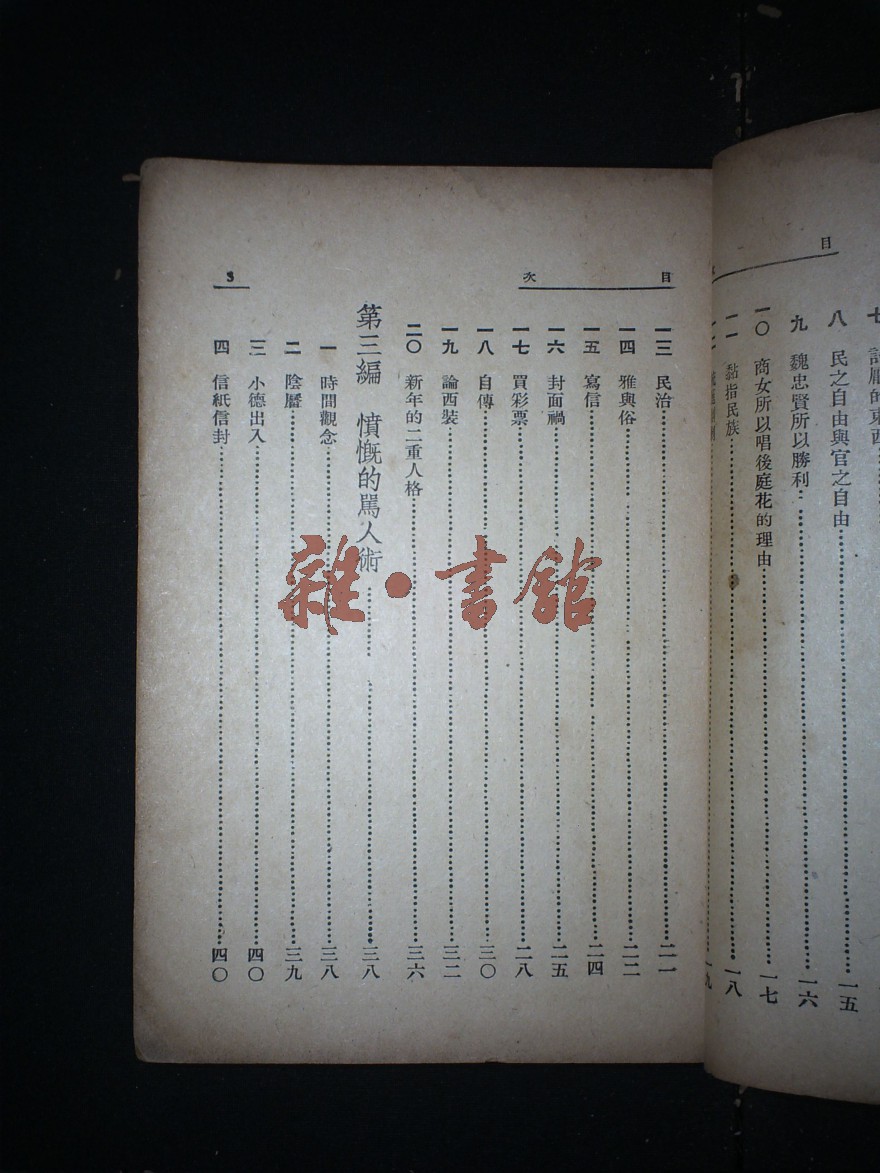 目
七
八 民之自由與官之自由 一五
九 魏忠賢所以勝利 一六
一〇 商女所以唱後庭花的理由 一七
一一 黏指民族 一八
目 次 3
一三 民治 二一
一四 雅與俗 二二
一五 寫信 二四
一六 封面禍 二五
一七 買彩票 二八
一八 自傳 三〇
一九 論西裝 三二
二〇 新年的二重人格 三六
第三編 憤慨的罵人術 三八
一 時間觀念 三八
二 陰曆 三九
三 小德出入 四〇
四 信紙信封 四〇
雜·書館